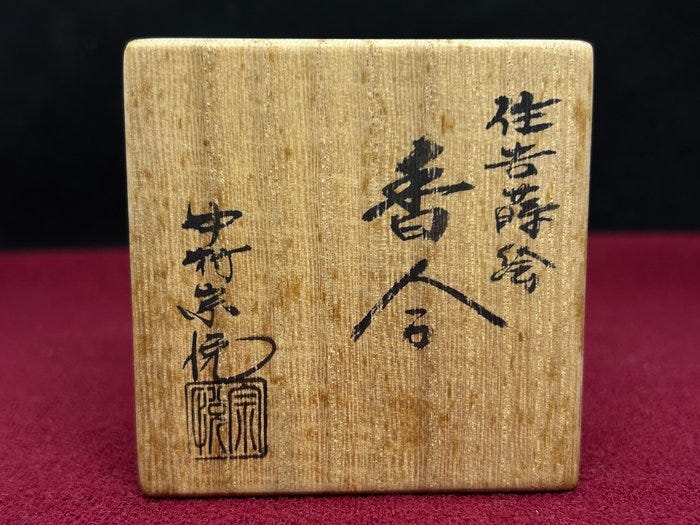 住吉蒔絵
香合
中村宗悦
宗悦